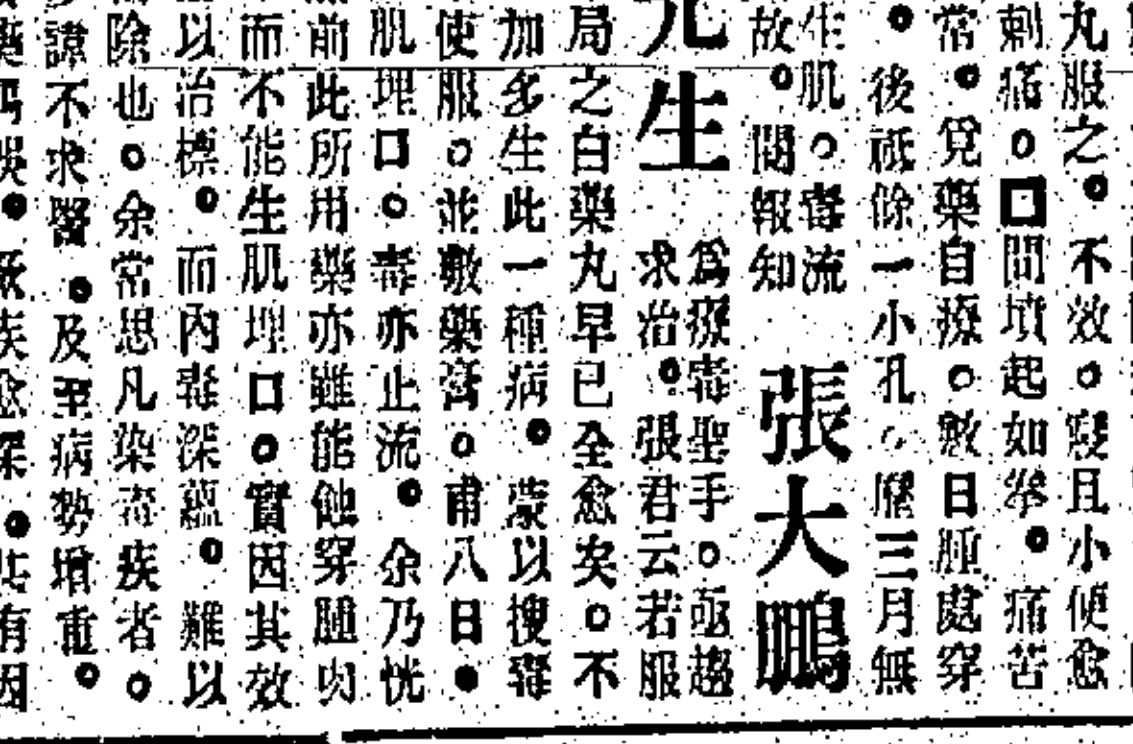 丸服之。不效。寖且小便愈
刺痛。口間墳起如拳。痛苦
常。覓藥自療。數日腫處穿
。後祗餘一小孔。歷三月無
生肌。毒流
故。閱報知
張大鵬
先生
爲療毒聖手。亟趨
求治。張君云若服
局之白藥丸早已全愈矣。不
加多生此一種病。蒙以搜毒
使服。並敷藥膏。甫八日。
肌埋口。毒亦止流。余乃恍
前此所用藥亦雖能使穿膿
而不能生肌埋口。實因其效
以治標。而內毒深蘊。難以
除也。余常思凡染毒疾者。
諱不求醫。及至病勢增重。
疾愈深。其有因